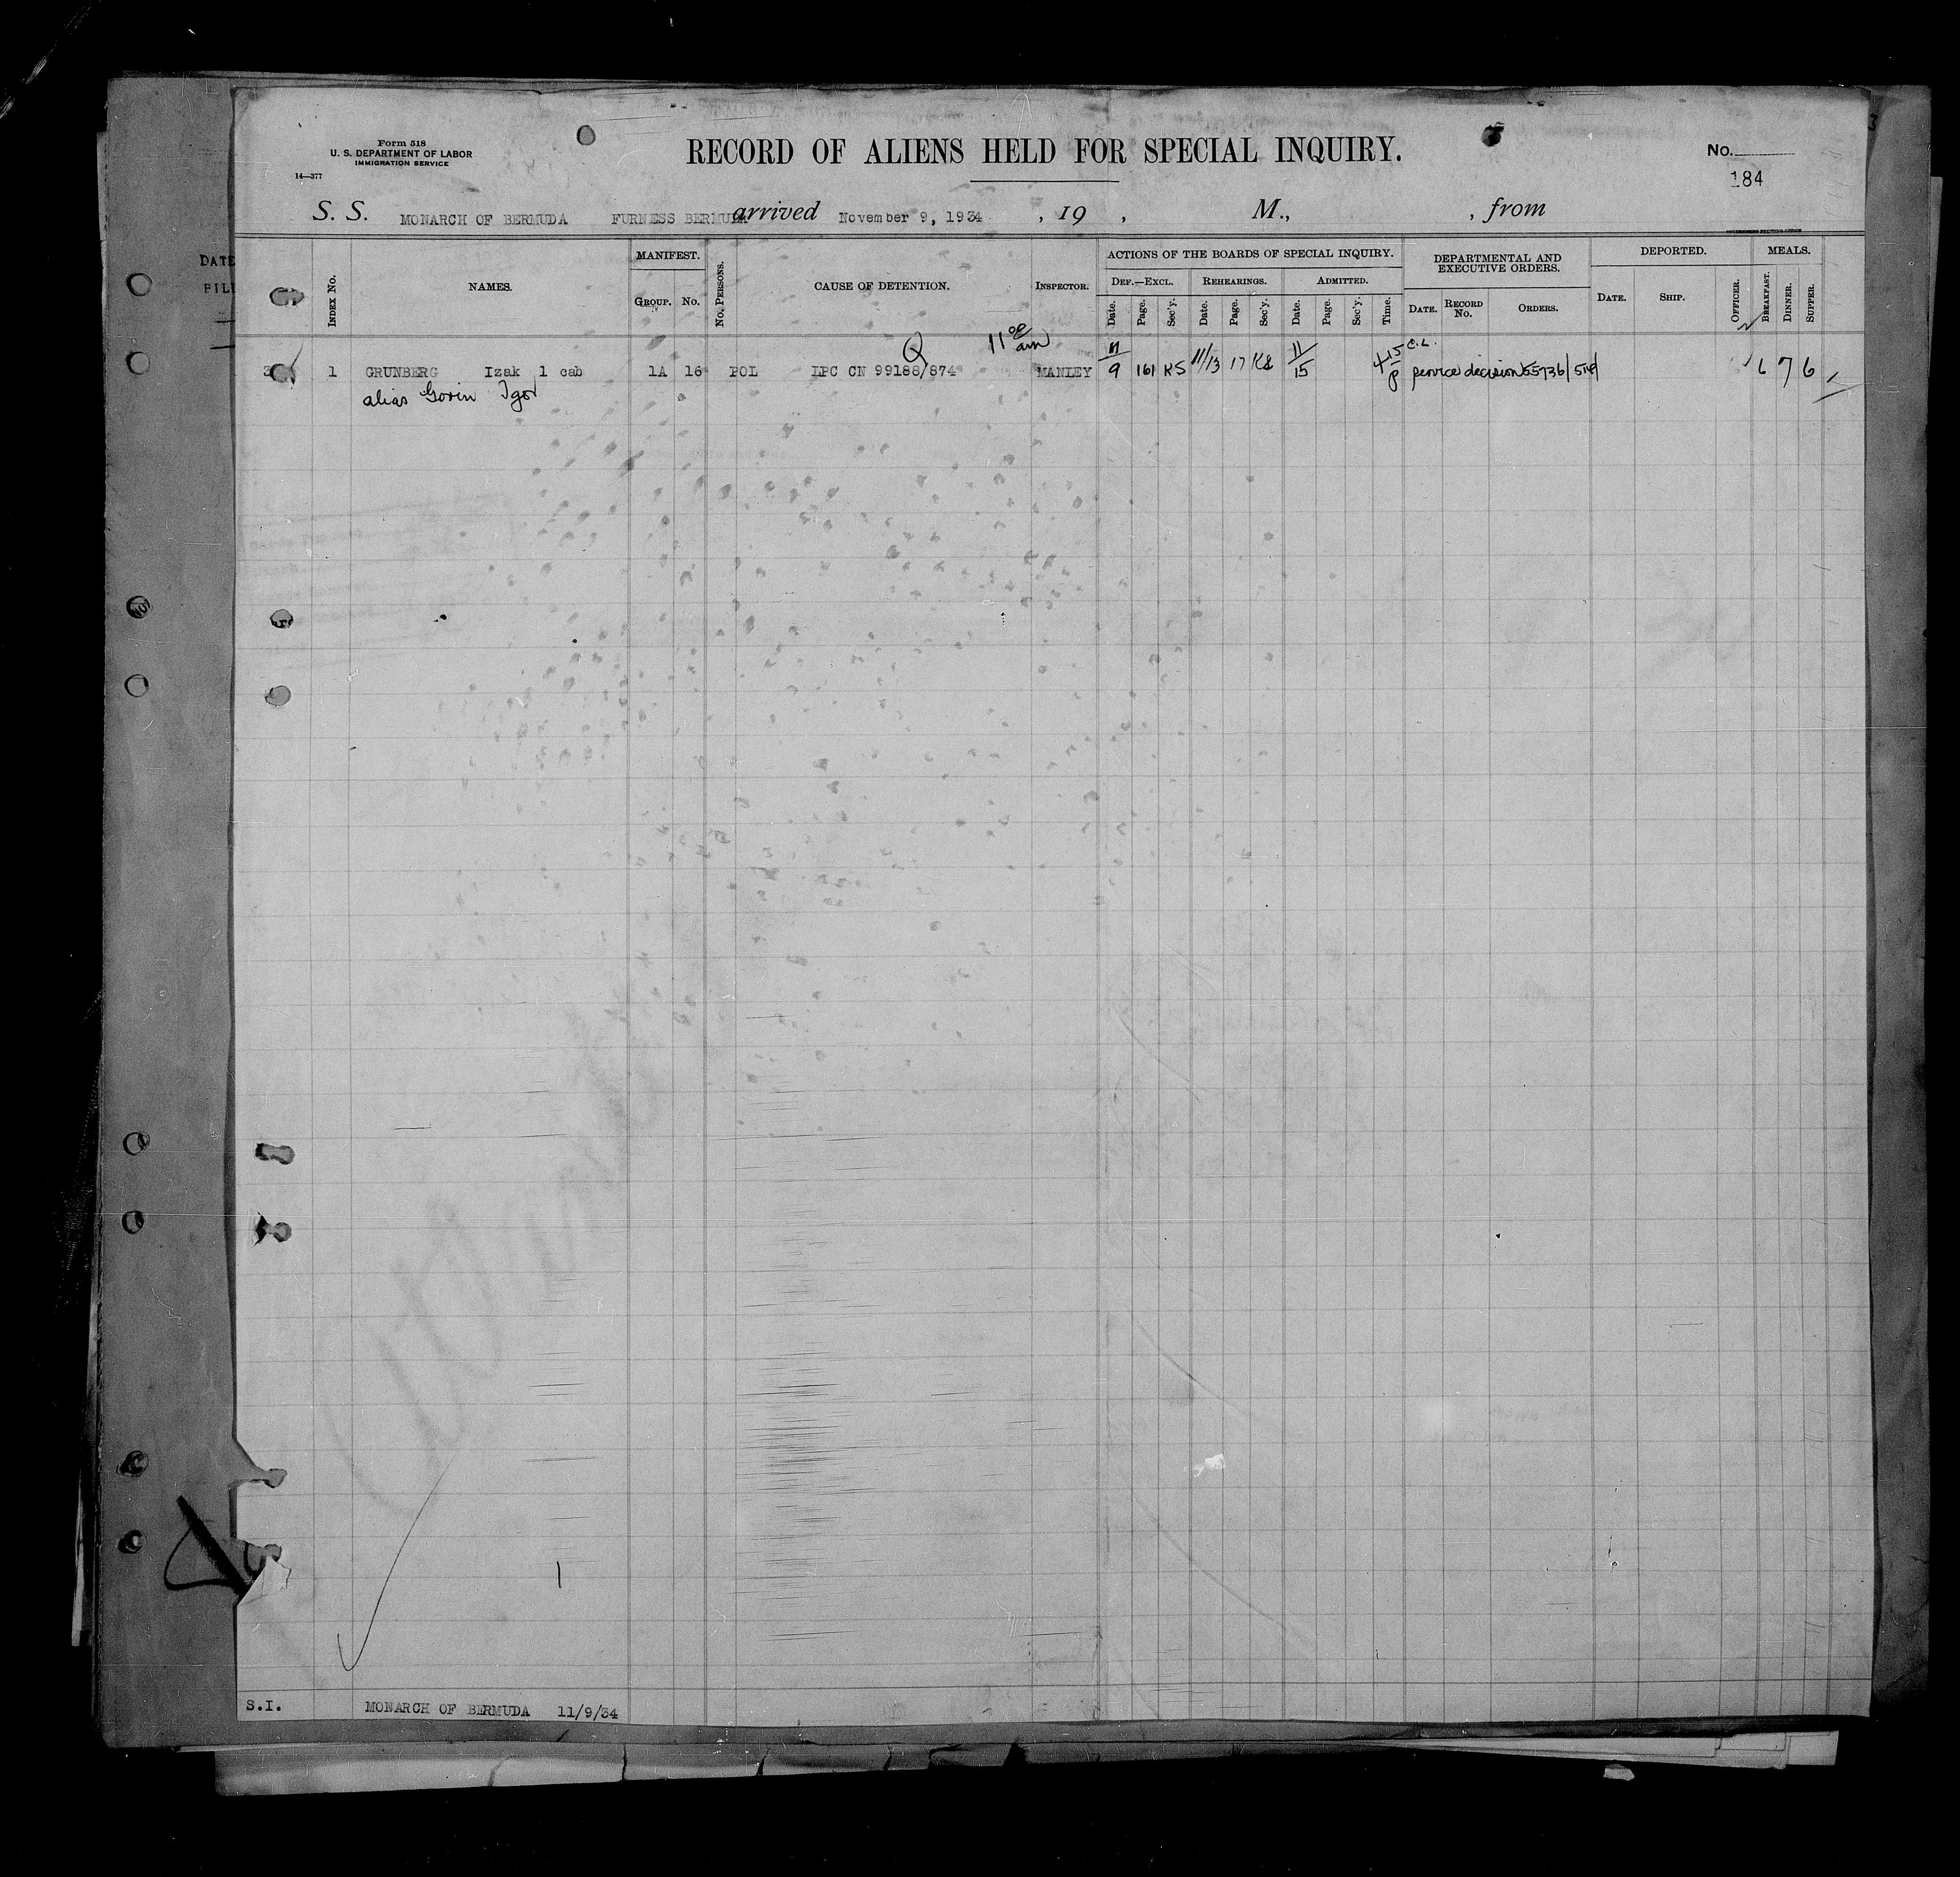 Form 518
U. S. DEPARTMENT OF LABOR
IMMIGRATION SERVICE
14—377
RECORD OF ALIENS HELD FOR SPECIAL INQUIRY.
No.
184
S. S. MONARCH OF BERMUDA FURNESS BERMUDA arrived November 9, 1934 , 19 , M., , from
DATE
FIL
INDEX No.
NAMES.
MANIFEST.
GROUP. No.
No. PERSONS.
CAUSE OF DETENTION.
INSPECTOR.
ACTIONS OF THE BOARDS OF SPECIAL INQUIRY.
DEF.—EXCL. REHEARINGS. ADMITTED.
Date. Page. Sec'y. Date. Page. Sec'y. Date. Page. Sec'y. Time.
DEPARTMENTAL AND
EXECUTIVE ORDERS.
DATE. RECORD No. ORDERS.
DEPORTED.
DATE. SHIP. OFFICER.
MEALS.
BREAKFAST. DINNER. SUPPER.
Q 11 00 am
1 GRUNBERG Izak 1 cab 1A 16 POL LPC CN 99188/874 MANLEY 11/9 161 KS 11/13 17 KS 11/15 4 15 P C.L. service decision 55736/ 6 7 6
alias Gorin Igor
1
S.I. MONARCH OF BERMUDA 11/9/34